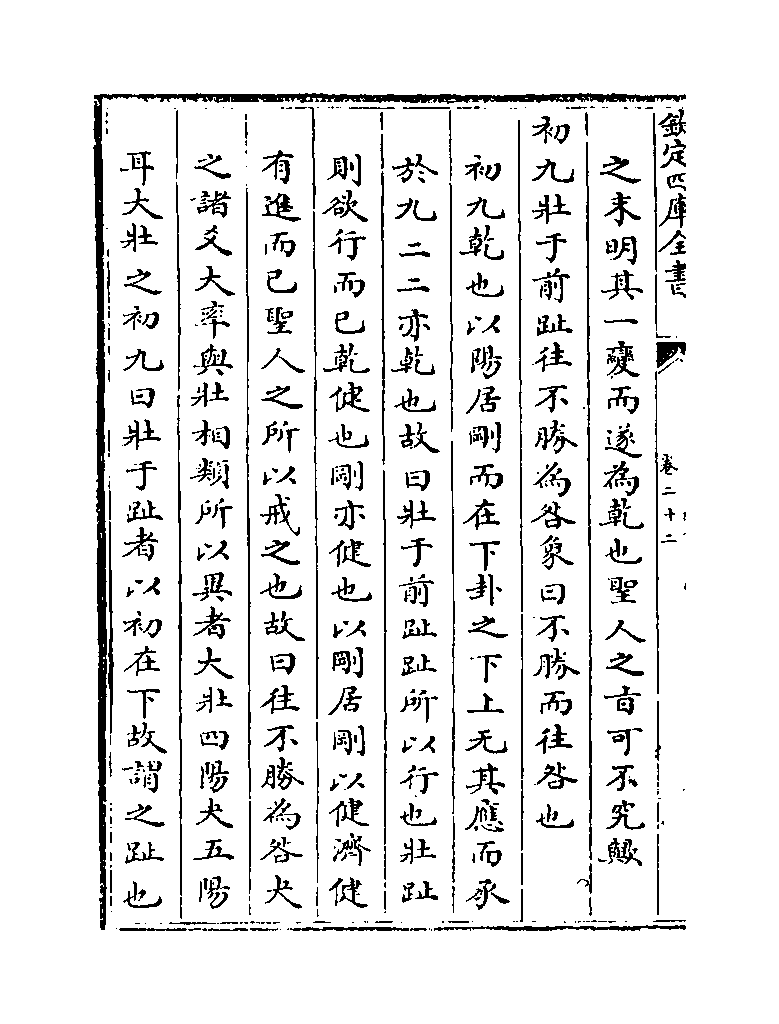 欽定四庫全書
卷二十二
之末明其一變而遂為乾也聖人之㫖可不究歟
初九壯于前趾往不勝為咎象曰不勝而往咎也
初九乾也以陽居剛而在下卦之下上无其應而承
於九二二亦乾也故曰壯于前趾趾所以行也壯趾
則欲行而已乾健也剛亦健也以剛居剛以健濟健
有進而已聖人之所以戒之也故曰往不勝為咎夬
之諸爻大率與壯相類所以異者大壯四陽夬五陽
耳大壯之初九曰壯于趾者以初在下故謂之趾也